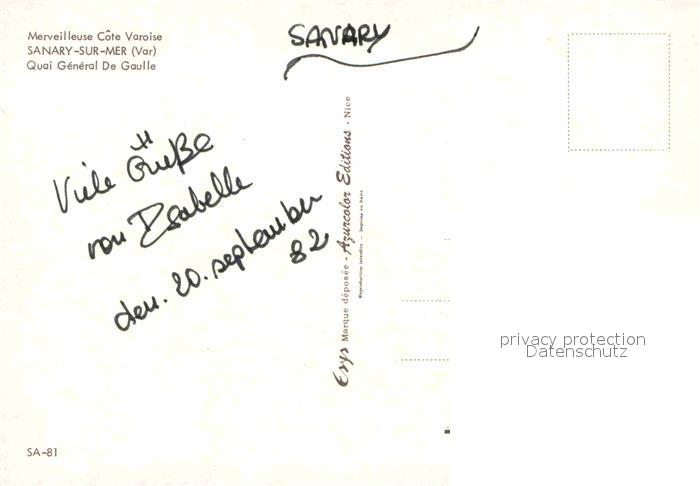 Merveilleuse Côte Varoise
SANARY-SUR-MER (Var)
Quai Général De Gaulle
SANARY
Viele Grüße
von Isabelle
den. 20. september
82
Erys Marque déposée - Azurcolor Editions - Nice
Reproduction interdite - Imprimé en Italie
privacy protection
Datenschutz
SA-81